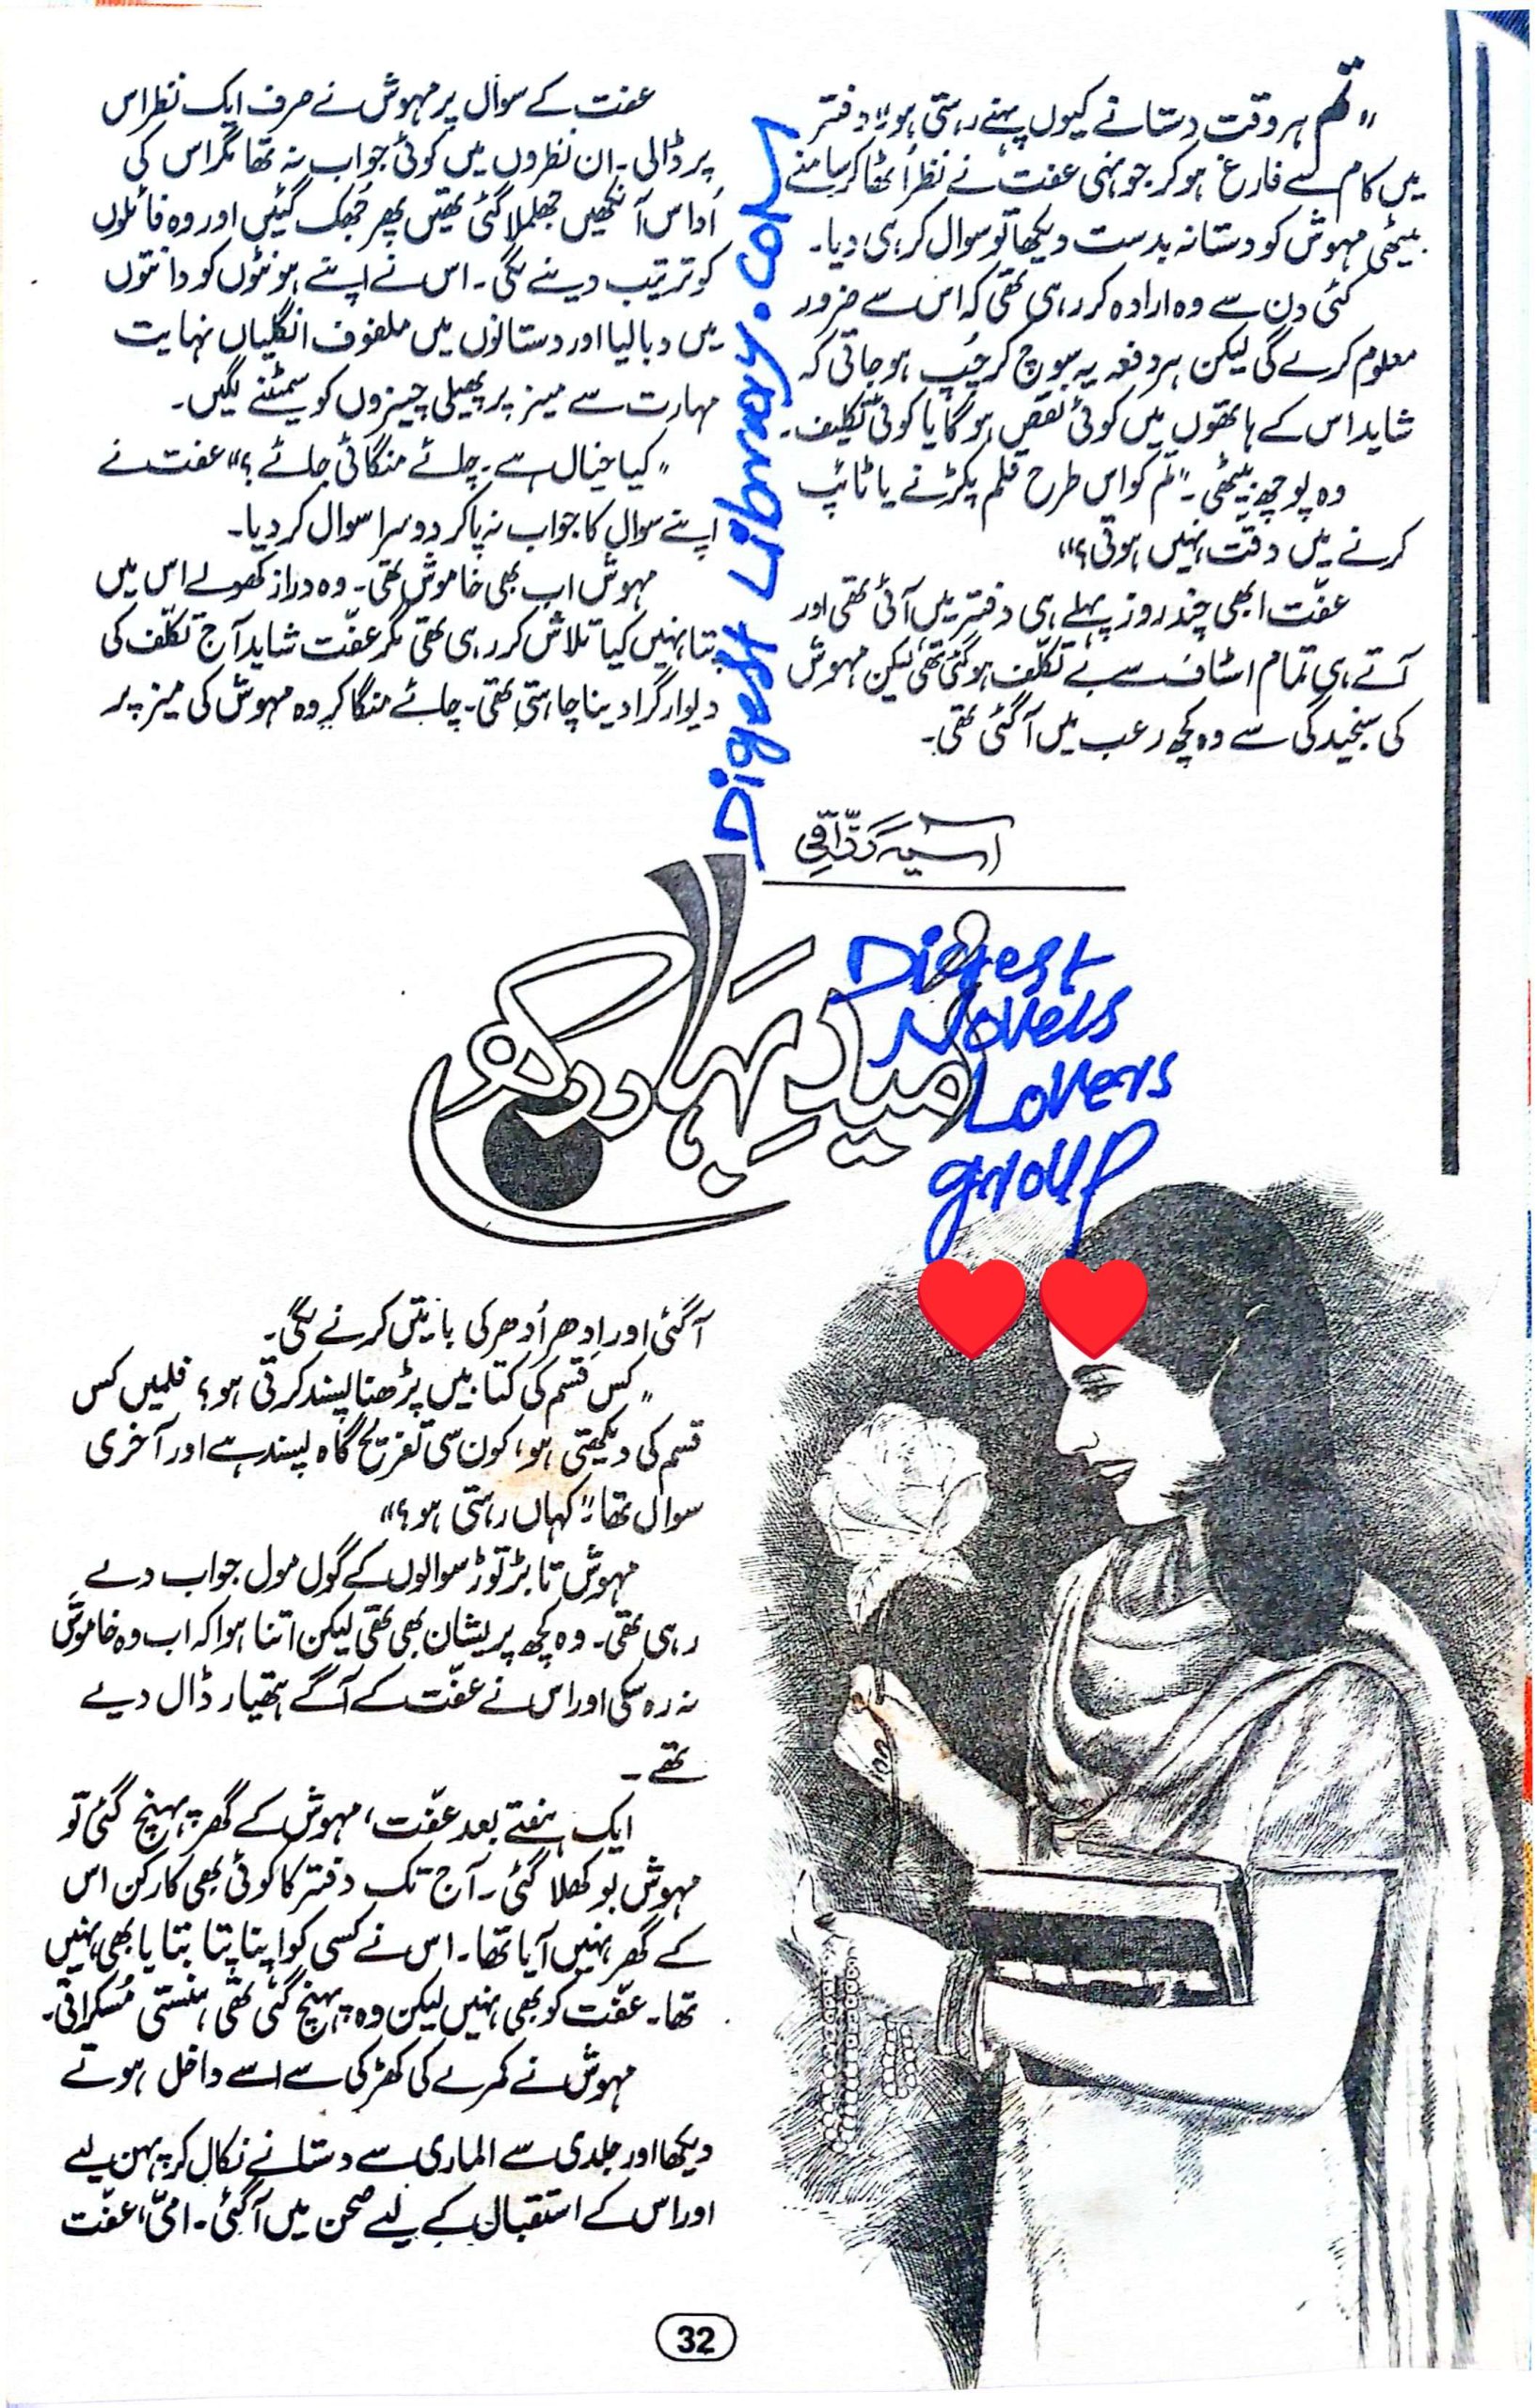 "تم ہر وقت دستانے کیوں پہنے رہتی ہو؟" دفتر
میں کام سے فارغ ہو کر جونہی عفت نے نظر اُٹھا کر سامنے
بیٹھی مہوش کو دستانہ بدست دیکھا تو سوال کر ہی دیا۔
کئی دن سے وہ ارادہ کر رہی تھی کہ اس سے ضرور
معلوم کرے گی لیکن ہر دفعہ یہ سوچ کر چُپ ہو جاتی کہ
شاید اس کے ہاتھوں میں کوئی نقص ہو گا یا کوئی تکلیف۔
وہ پوچھ بیٹھی۔ "تم کو اس طرح قلم پکڑنے یا ٹائپ
کرنے میں دقّت نہیں ہوتی؟"
عفّت ابھی چند روز پہلے ہی دفتر میں آئی تھی اور
آتے ہی تمام اسٹاف سے بے تکلّف ہو گئی تھی لیکن مہوش
کی سنجیدگی سے وہ کچھ رعب میں آ گئی تھی۔
عفت کے سوال پر مہوش نے صرف ایک نظر اس
پر ڈالی۔ ان نظروں میں کوئی جواب نہ تھا مگر اس کی
اُداس آنکھیں جھلملا گئی تھیں پھر جُھک گئیں اور وہ فائلوں
کو ترتیب دینے لگی۔ اس نے اپنے ہونٹوں کو دانتوں
میں دبا لیا اور دستانوں میں ملفوف انگلیاں نہایت
مہارت سے میز پر پھیلی چیزوں کو سمٹنے لگیں۔
"کیا خیال ہے۔ چائے منگائی جائے؟" عفت نے
اپنے سوال کا جواب نہ پا کر دوسرا سوال کر دیا۔
مہوش اب بھی خاموش تھی۔ وہ دراز کھولے اس میں
پتا نہیں کیا تلاش کر رہی تھی مگر عفّت شاید آج تکلّف کی
دیوار گرا دینا چاہتی تھی۔ چائے منگا کر وہ مہوش کی میز پر
Digest Library.com
آسیہ رزّاقی
امیدِ بہار رکھو
Digest
Novels
Lovers
group
آ گئی اور اِدھر اُدھر کی باتیں کرنے لگی۔
"کس قسم کی کتابیں پڑھنا پسند کرتی ہو؟ فلمیں کس
قسم کی دیکھتی ہو، کون سی تفریح گاہ پسند ہے اور آخری
سوال تھا "کہاں رہتی ہو؟"
مہوش تابڑ توڑ سوالوں کے گول مول جواب دے
رہی تھی۔ وہ کچھ پریشان بھی تھی لیکن اتنا ہوا کہ اب وہ خاموش
نہ رہ سکی اور اس نے عفّت کے آگے ہتھیار ڈال دیے
تھے۔
ایک ہفتے بعد عفّت، مہوش کے گھر پہنچ گئی تو
مہوش بوکھلا گئی۔ آج تک دفتر کا کوئی بھی کارکن اس
کے گھر نہیں آیا تھا۔ اس نے کسی کو اپنا پتا بتایا بھی نہیں
تھا۔ عفّت کو بھی نہیں لیکن وہ پہنچ گئی تھی، ہنستی مُسکراتی۔
مہوش نے کمرے کی کھڑکی سے اسے داخل ہوتے
دیکھا اور جلدی سے الماری سے دستانے نکال کر پہن لیے
اور اس کے استقبال کے لیے صحن میں آ گئی۔ امّی، عفّت
32